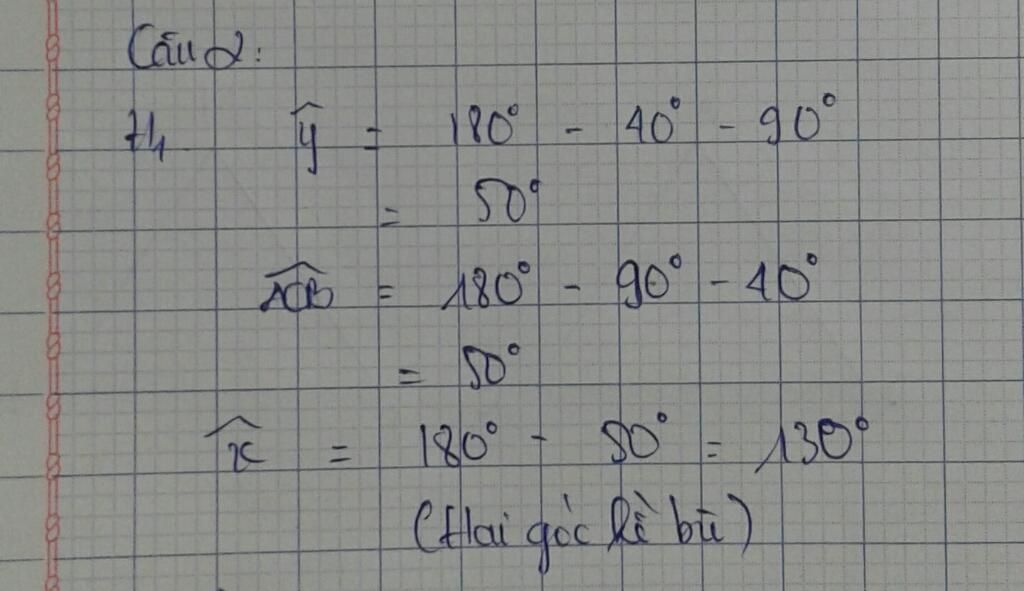 Câu 2:
H₁ ŷ = 180° - 40° - 90°
= 50°
\widehat{ACB} = 180° - 90° - 40°
= 50°
\widehat{x} = 180° - 50° = 130°
(Hai góc kề bù)